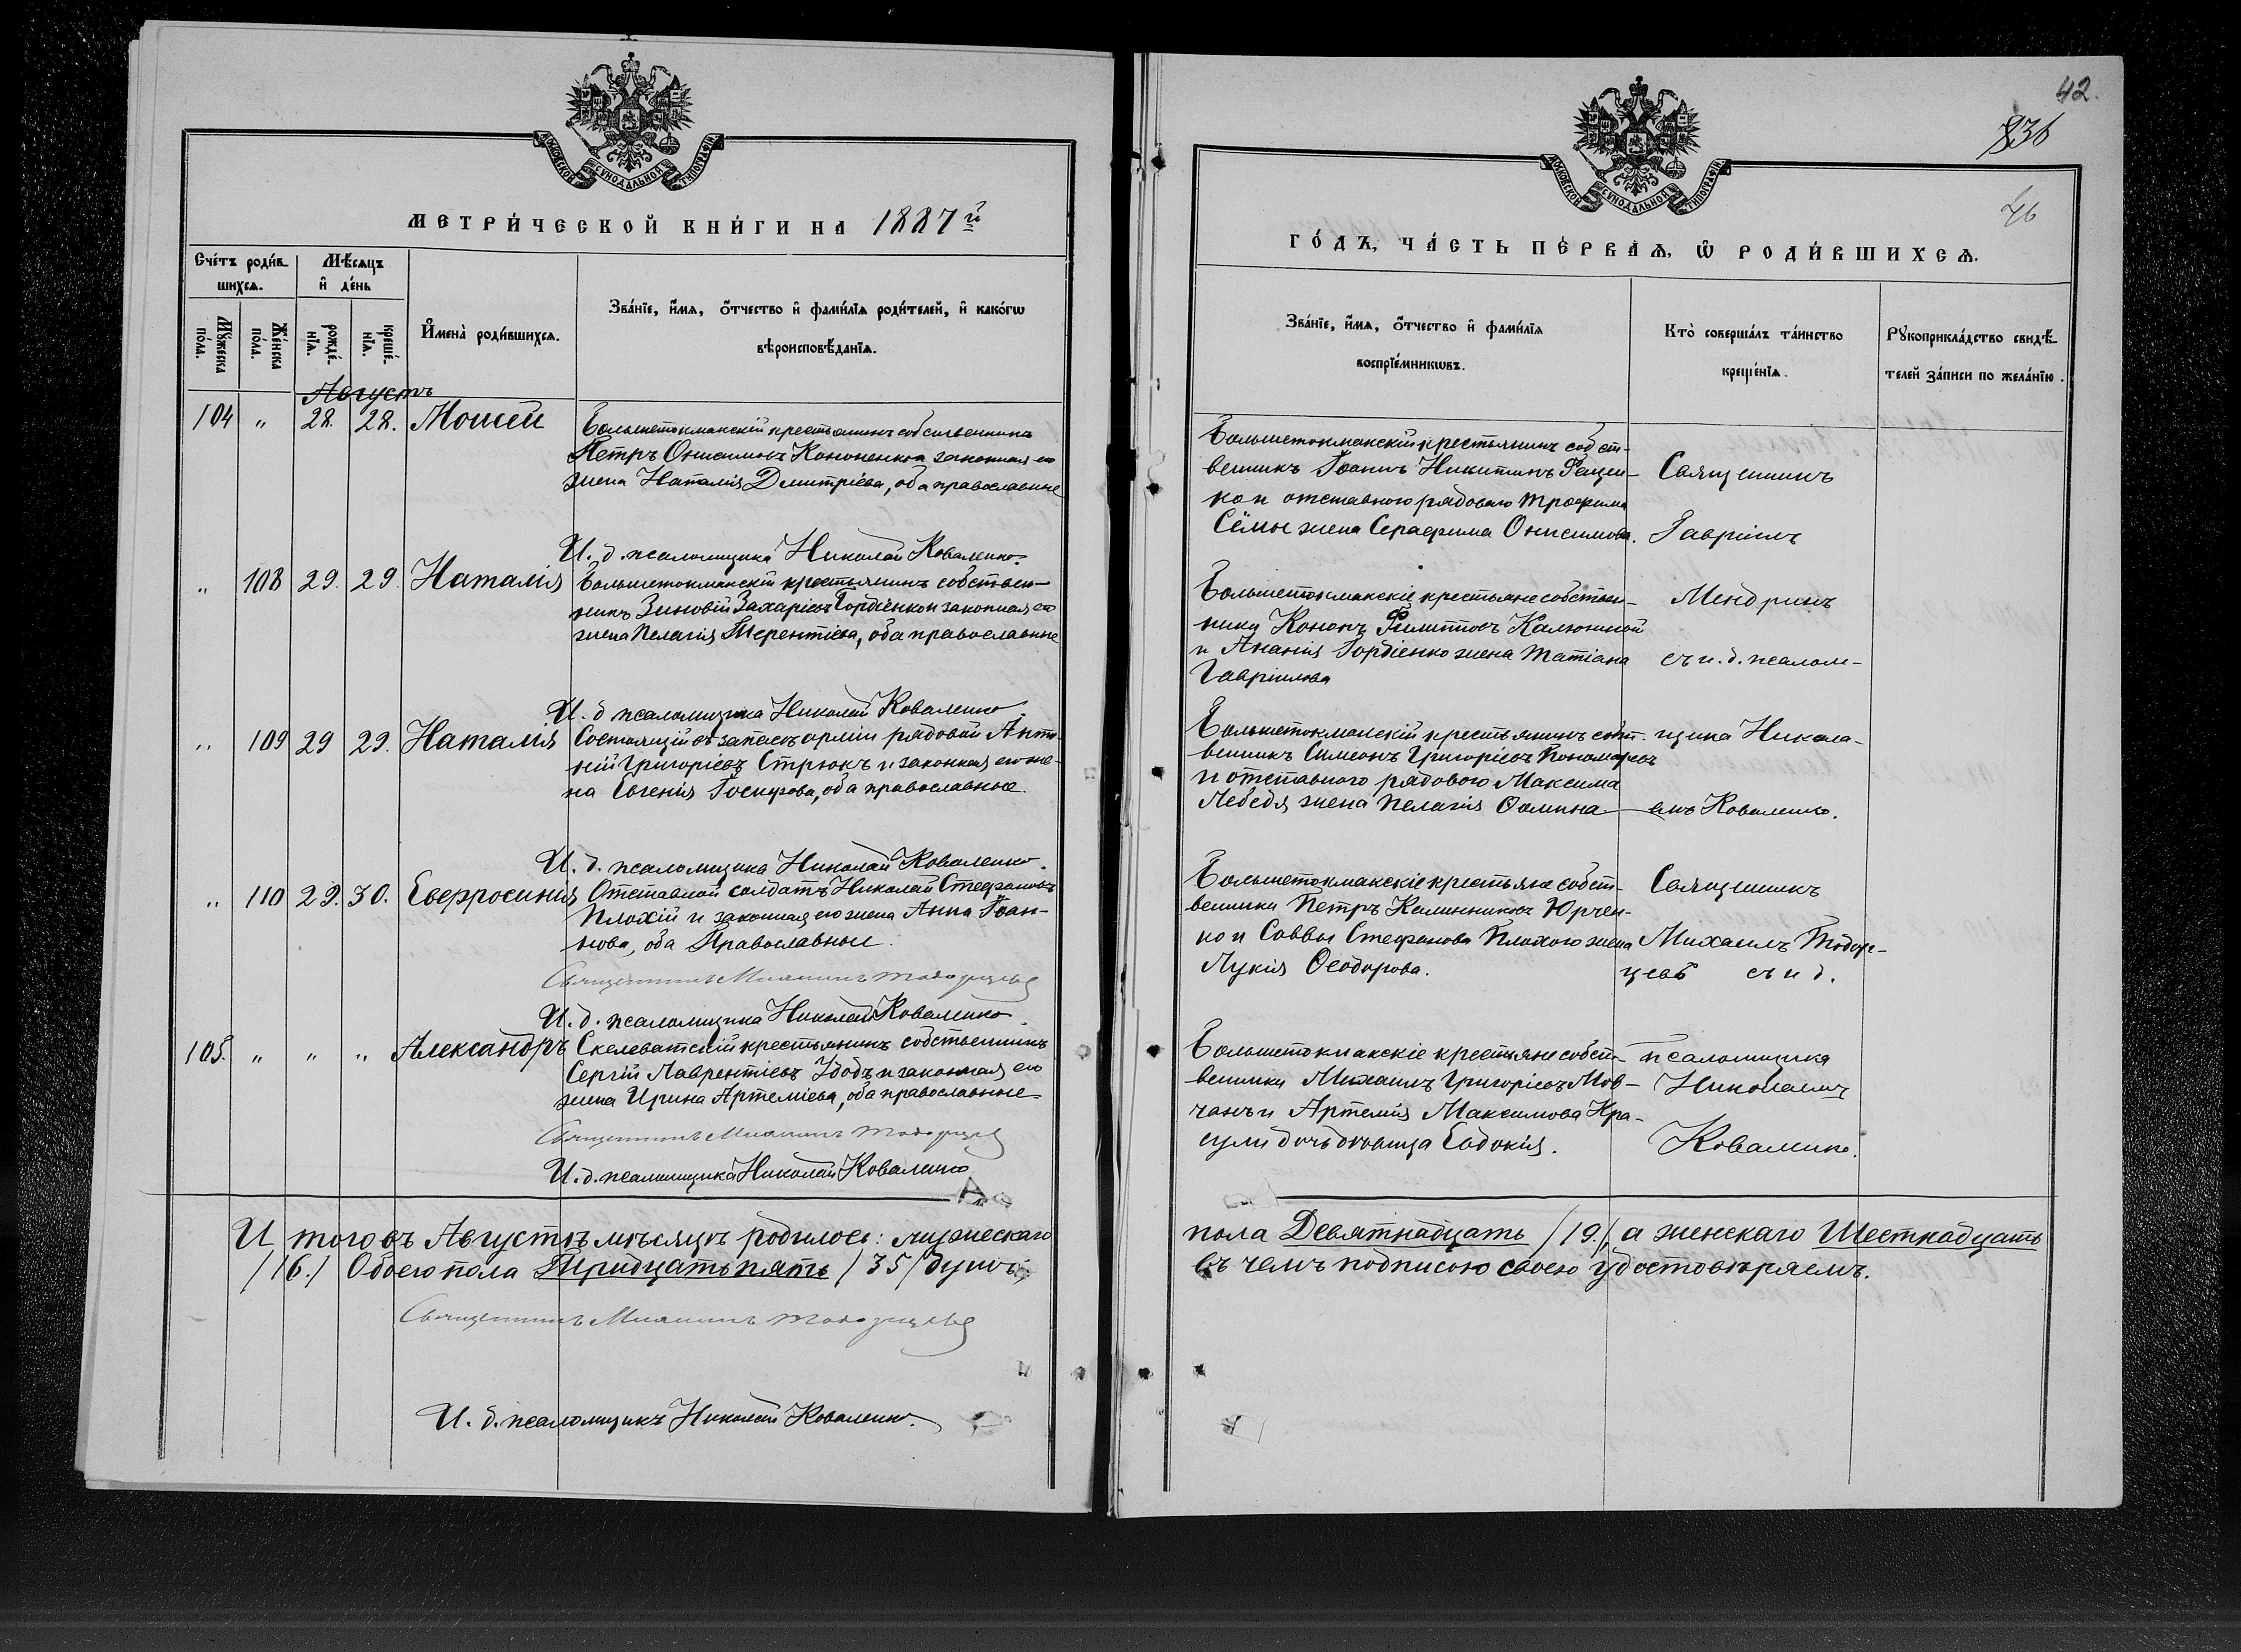 МЕТРИ́ЧЕСКОЙ КНИ́ГИ НА 1887й
Сче́тъ роди́вшихсѧ.
Мѣ́сѧцъ и҆ де́нь
Мꙋ́жеска по́ла.
Же́нска по́ла.
рожде́нїѧ.
креще́нїѧ.
И҆мена̀ роди́вшихсѧ.
Зва́нїе, и҆́мѧ, ѻ҆́тчество и҆ фами́лїѧ роди́телей, и҆ како́гѡ
вѣроисповѣ́данїѧ.
Августъ
104 " 28. 28. Моисей
Большетокмакскій крестьянинъ собственникъ
Петръ Онисимовъ Кононенко законная его
жена Наталія Дмитріева, оба православные
И. д. псаломщика Николай Коваленко.
" 108 29. 29. Наталія
Большетокмакскій крестьянинъ собствен-
никъ Зиновій Захаріевъ Гордіенко и законная его
жена Пелагія Терентіева, оба православные
И. д псаломщика Николай Коваленко.
" 109 29 29. Наталія
Состоящій въ запасѣ арміи рядовой Анто-
ній Григоріевъ Стрюкъ и законная его же-
на Евгенія Іосифова, оба православные.
И. д. псаломщика Николай Коваленко.
" 110 29. 30. Евфросинія
Отставной солдатъ Николай Стефановъ
Плохій и законная его жена Анна Іоан-
нова, оба Православные.
Священникъ Михаилъ Тодорцевъ
И. д. псаломщика Николай Коваленко.
105. " " " Александръ
Скелеватскій крестьянинъ собственникъ
Сергій Лаврентіевъ Удодъ и законная его
жена Ирина Артеміева, оба православные
Священникъ Михаилъ Тодорцевъ
И. д. псаломщика Николай Коваленко
И того въ Августѣ мѣсяцѣ родилось: мужескаго
/16./ Обоего пола Тридцать пять /35/ душъ
Священникъ Михаилъ Тодорцевъ
И. д. псаломщикъ Николай Коваленко.
42.
836
46
ГО́ДЪ, ЧА́СТЬ ПЕ́РВАѦ, Ѽ РОДИ́ВШИХСѦ.
Зва́нїе, и҆́мѧ, ѻ҆́тчество и҆ фами́лїѧ
воспрїе́мникѡвъ.
Кто̀ соверша́лъ та́инство
креще́нїѧ.
Рꙋкоприкла́дство свидѣ́-
телей за́писи по жела́нїю.
Большетокмакскій крестьянинъ собст-
венникъ Іоаннъ Никитинъ Фещен-
ко и отставного рядоваго Трофима
Сёмы жена Серафима Онисимова.
Священникъ
Гавріилъ
Большетокмакскіе крестьяне собствен-
ники Кононъ Филипповъ Калюжный
и Ананія Гордіенко жена Татіана
Гавріилова
Мендринъ
съ и. д. псалом-
Большетокмакскій крестьянинъ собст.
венникъ Симеонъ Григоріевъ Пономаревъ
и отставного рядового Максима
Лебедя жена Пелагія Ѳомина
щика Никола-
емъ Коваленко.
Большетокмакскіе крестьяне собст-
венники Петръ Калинниковъ Юрчен-
ко и Саввы Стефанова Плохого жена
Лукія Ѳеодорова.
Священникъ
Михаилъ Тодор-
цевъ съ и д.
Большетокмакскіе крестьяне собст-
венники Михаилъ Григоріевъ Мов-
чанъ и Артемія Максимова Кра-
сули дочь дѣвица Евдокія.
псаломщика
Николаемъ
Коваленко.
пола Девятнадцать /19./, а женскаго Шестнадцать
въ чемъ подписою своею удостовѣряемъ.